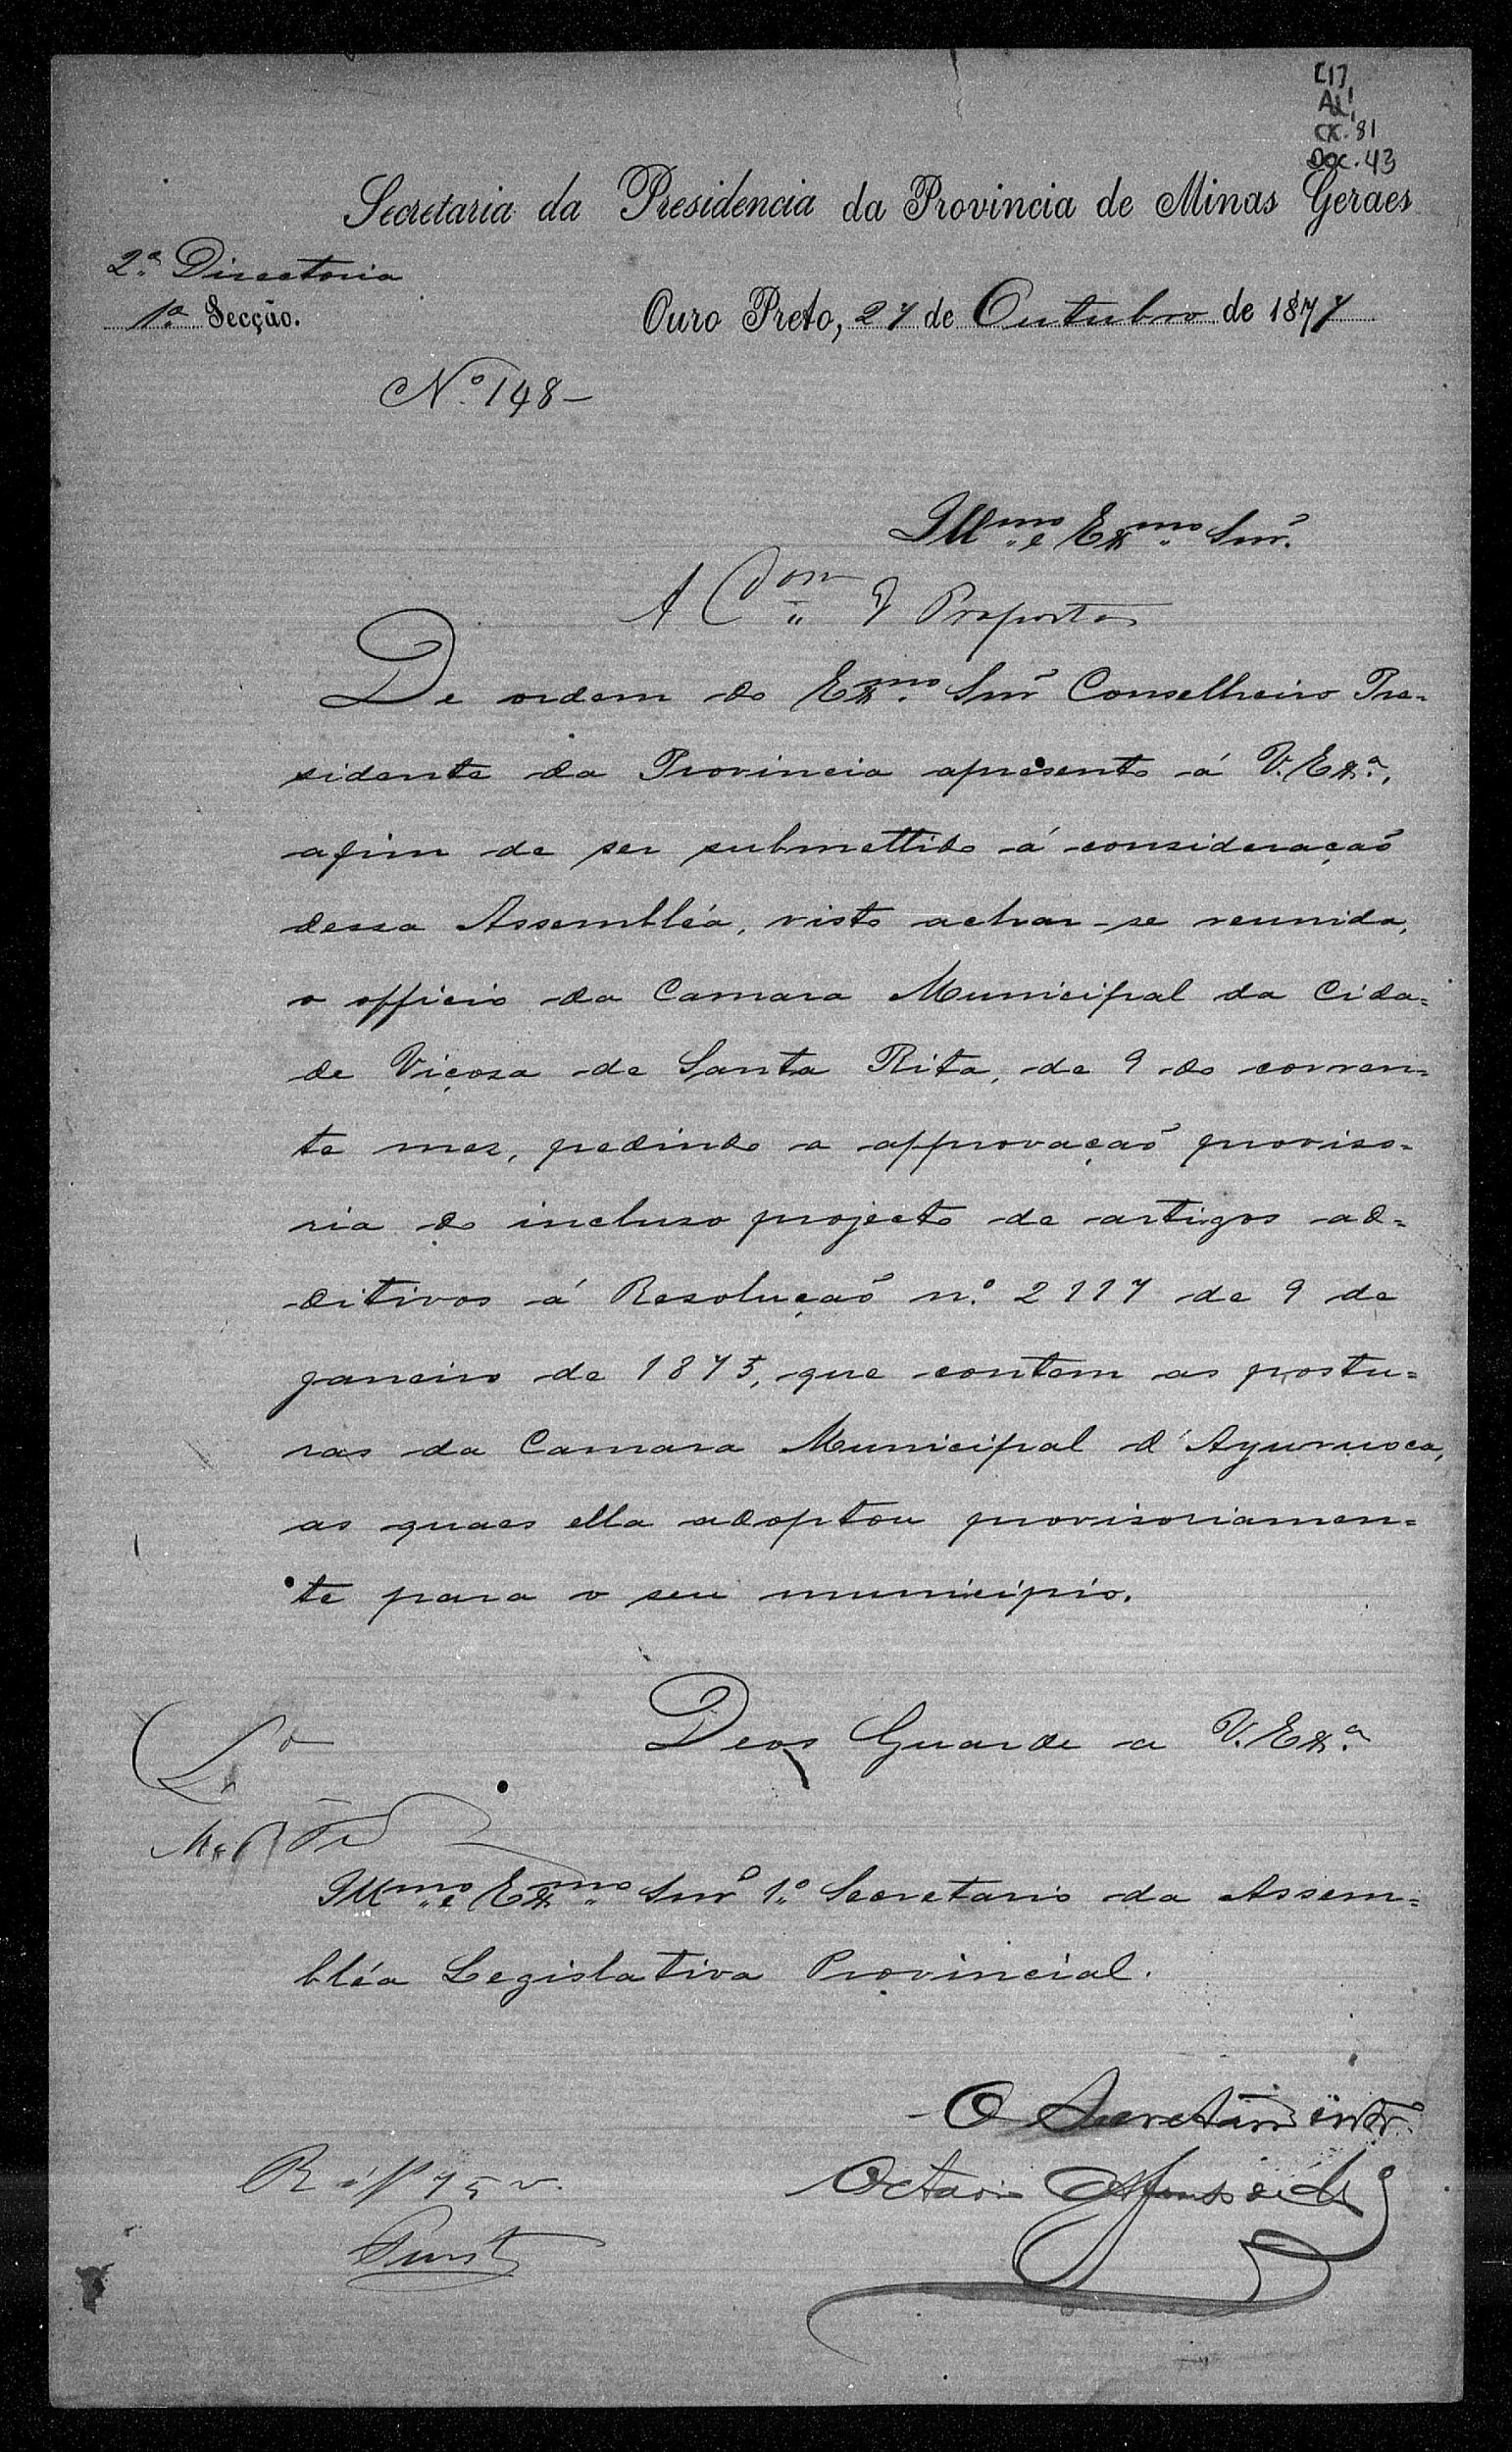 Cx. 81
Doc. 43
Secretaria da Presidencia da Provincia de Minas Geraes
2ª Directoria
1ª Secção.
Ouro Preto, 27 de Outubro de 1877
Nº 148-
Illmo e Exmo Snr.
De ordem do Exmo Snr Conselheiro Pre-
sidente da Provincia apresento á V. Exª,
afim de ser submettido á consideração
dessa Assembléa, visto achar-se reunida,
o officio da Camara Municipal da Cida=
de Viçosa de Santa Rita, de 9 do corren=
te mez, pedindo a approvação proviso=
ria do incluso projecto de artigos ad=
ditivos á Resolução nº 2117 de 9 de
janeiro de 1875, que contem as postu=
ras da Camara Municipal d'Ayuruoca,
as quaes ella adoptou provisoriamen=
te para o seu municipio.
Deos Guarde a V. Exª
Illmo e Exmo Snr 1º Secretario da Assem=
bléa Legislativa Provincial.
O Secretario
Octavio